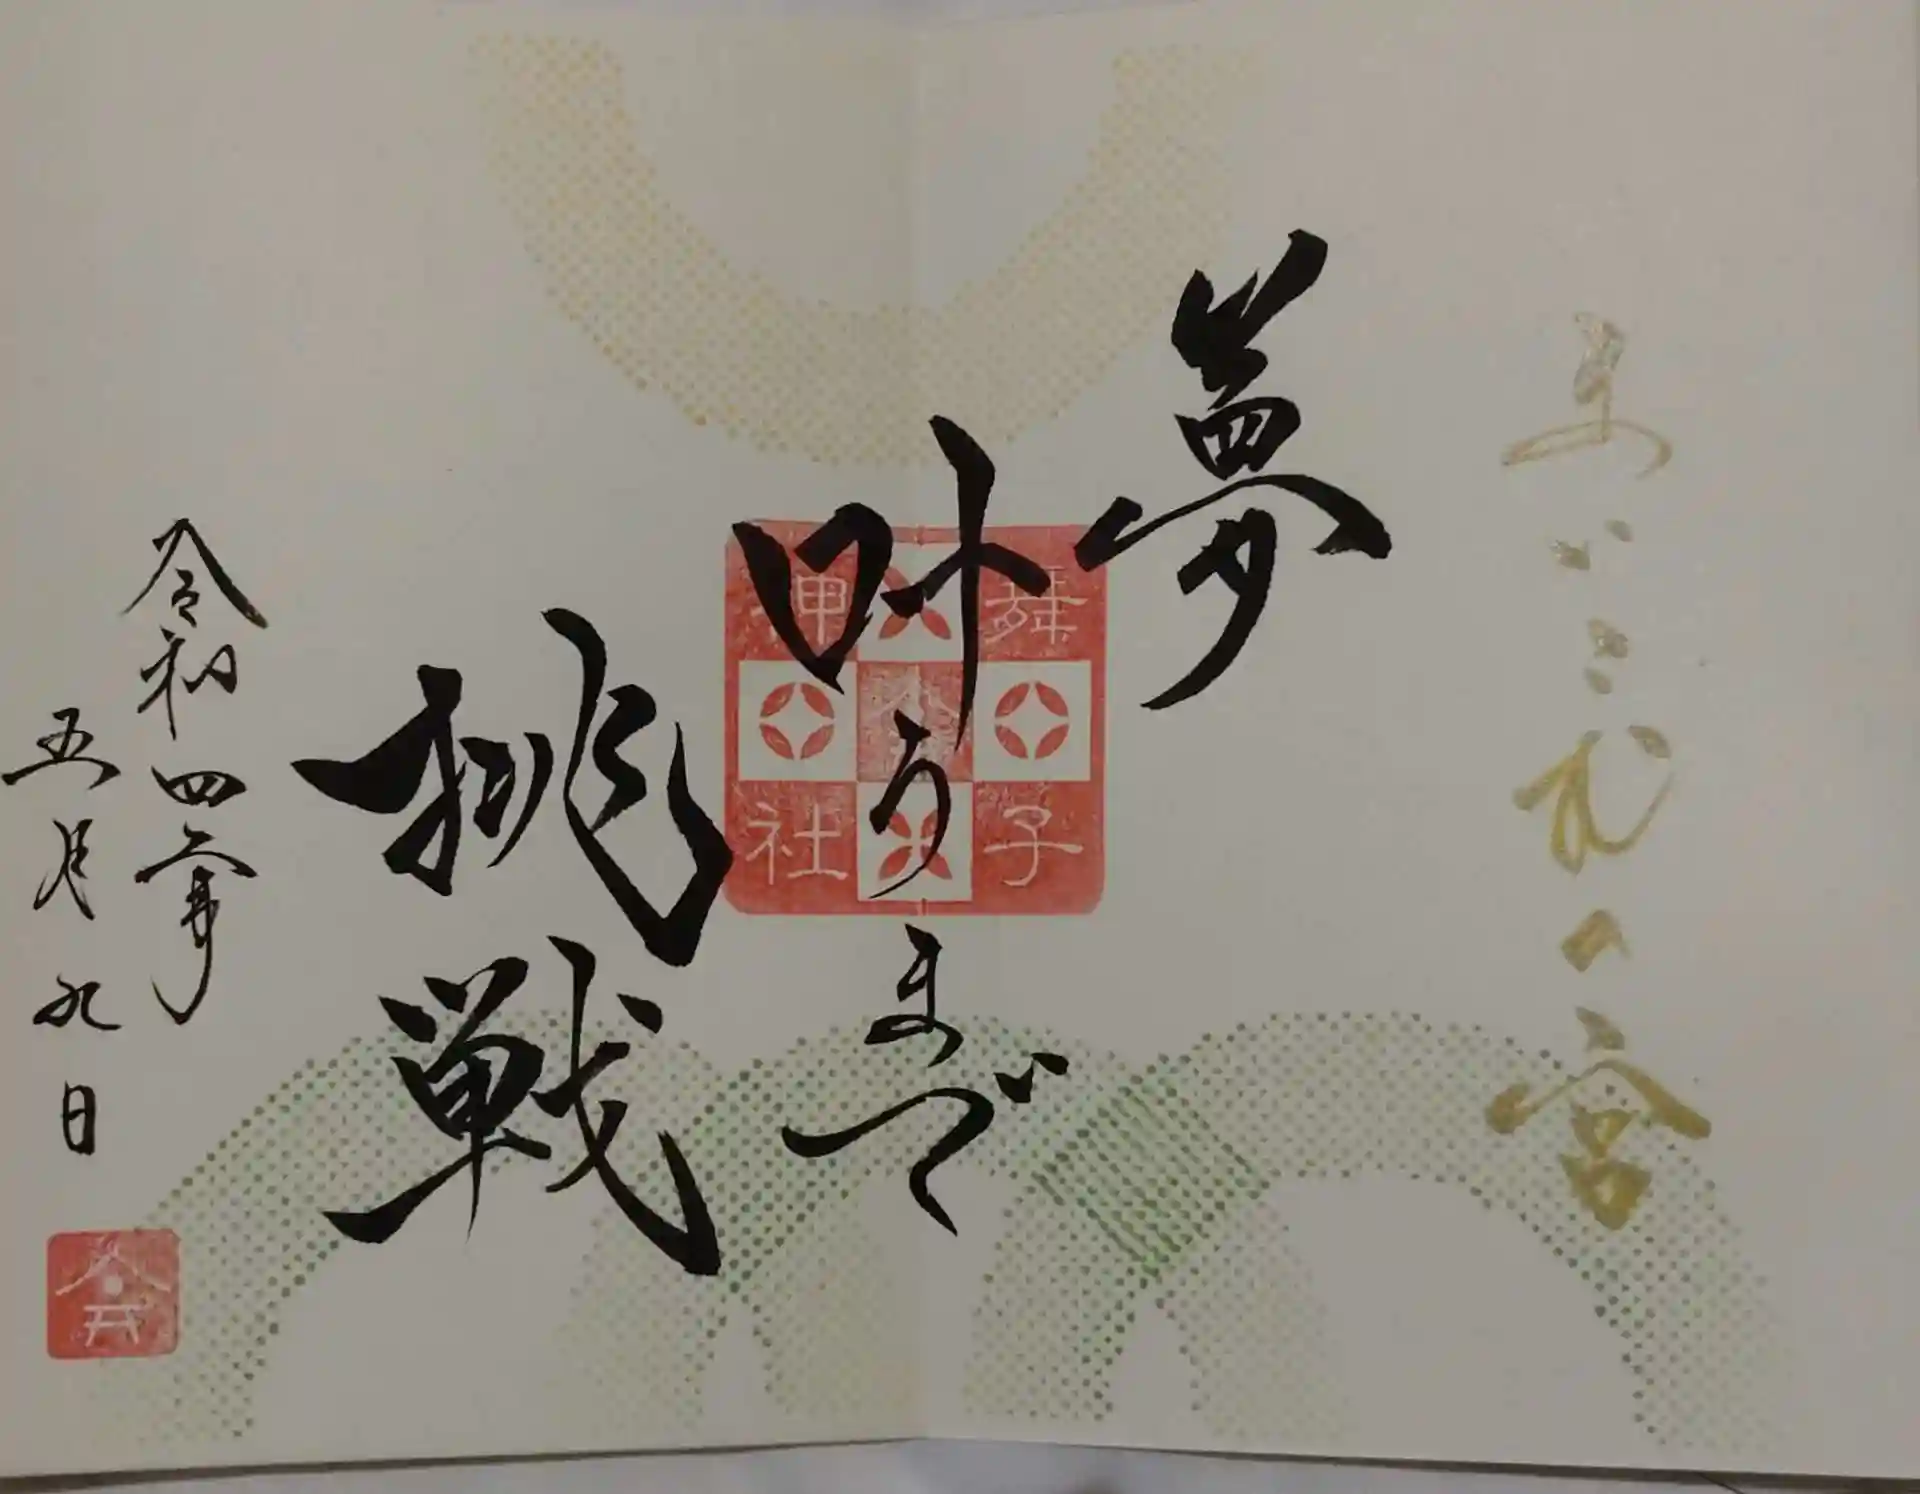 まいこの宮
夢
叶うまで
挑戦
令和四年
五月九日
舞子
六
神社